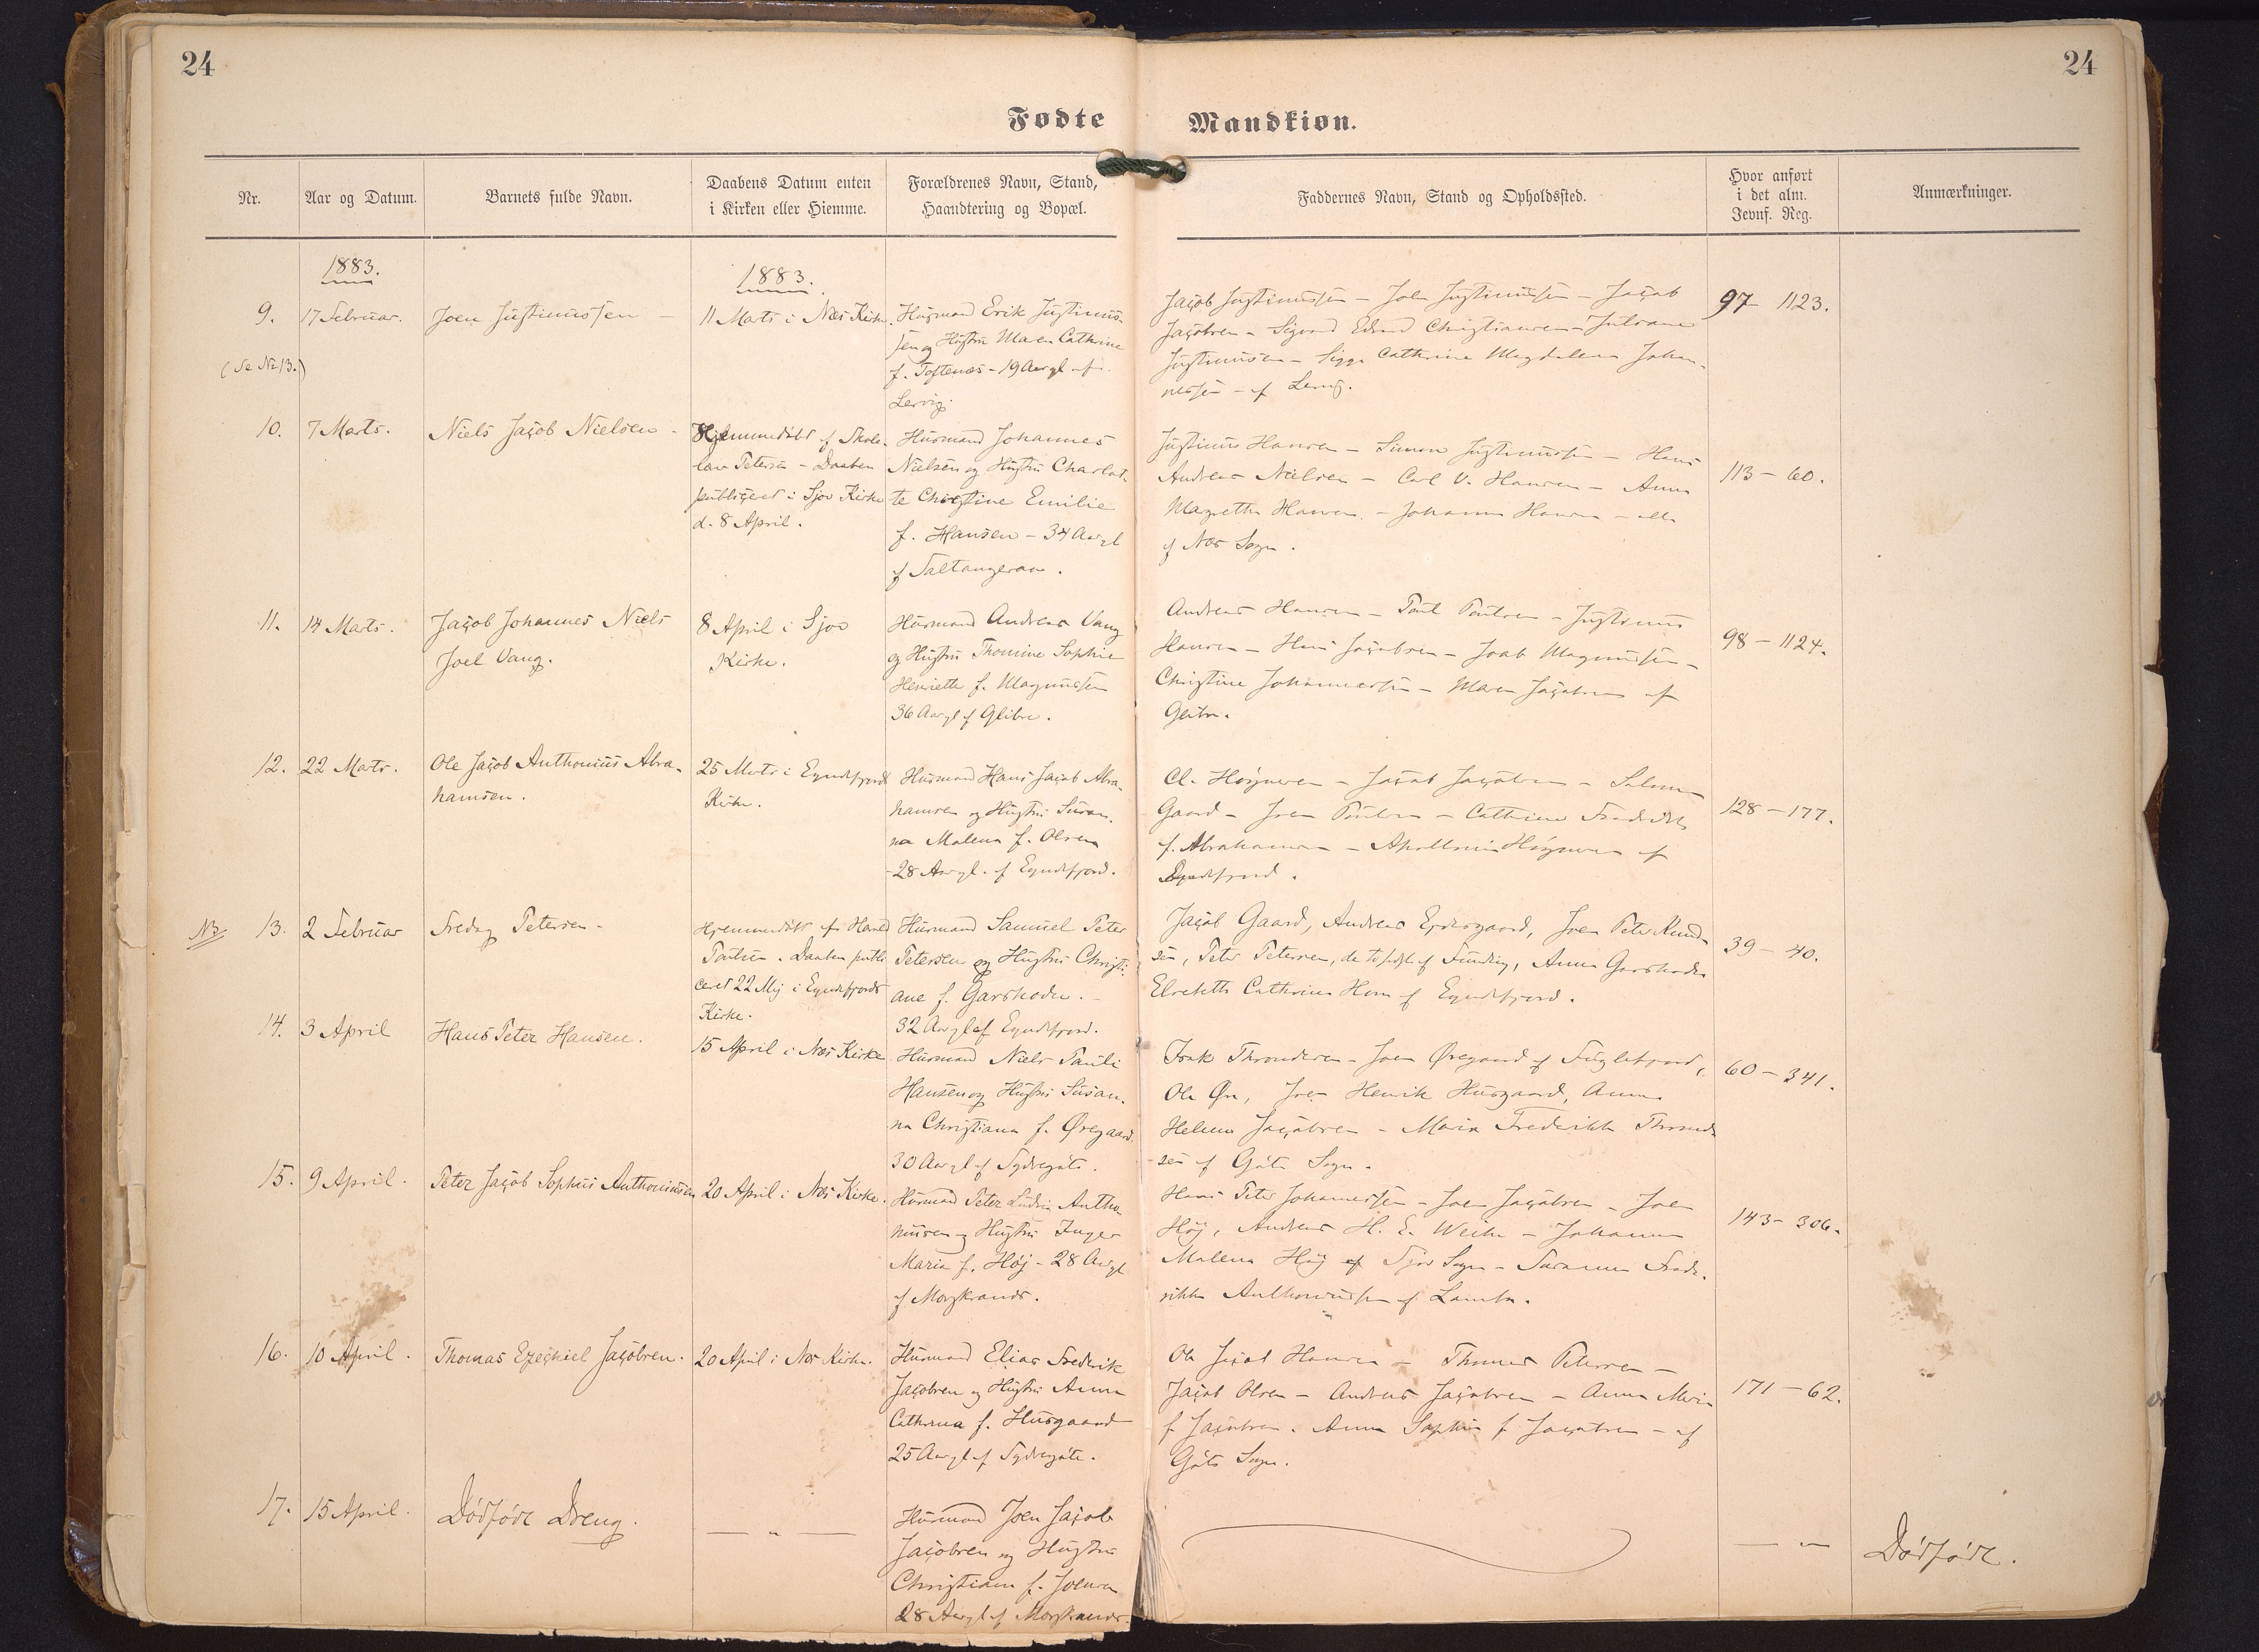 24
24
Fødte
Mandkiøn.
Nr.
Aar og Datum.
Barnets fulde Navn.
Daabens Datum enten
i Kirken eller Hiemme.
Forældrenes Navn, Stand,
Haandtering og Bopæl.
Faddernes Navn, Stand og Opholdssted.
Hvor anført
i det alm.
Jevnf. Reg.
Anmærkninger.
1883.
1883.
9.
(Se Nr 13.)
17 Februar.
Joen Justinussen
11 Marts i Næs Kirke.
Husmand Erik Justinus-
sen og Hustru Maren Cathrine
f. Toftenæs - 19 Aar gl af
Lervig.
Jacob Justinussen - Joen Justinussen - Jacob
Jacobsen - Sigvard Edvard Christiansen - Juliane
Justinussen - Sigga Cathrine Magdalena Johan-
nessen - af Lervig.
97 1123.
10.
7 Marts.
Niels Jacob Nielsen
Hjemmedøbt af
Petersen - Daaben
publiceret i Sjov Kirke
d. 8 April.
Husmand Johannes
Nielsen og Hustru Charlot-
te Christine Emilie
f. Hansen - 34 Aar gl
af Saltangeraa.
Justinus Hansen - Simon Justinussen - Hans
Andreas Nielsen - Carl V. Hansen - Anna
Magrethe Hansen - Johanna Hansen - alle
af Næs Sogn.
113 - 60.
11.
14 Marts.
Jacob Johannes Niels
Joel Vang.
8 April i Sjov
Kirke.
Husmand Andreas Vang
og Hustru Thomine Sophie
Henriette f. Magnussen
36 Aar gl af Glibre.
Andreas Hansen - Poul Poulsen - Justinus
Hansen - Hans Jacobsen - Joab Magnussen -
Christine Johannessen - Maren Jacobsen af
Glibre.
98 - 1124.
12.
22 Marts.
Ole Jacob Anthonius Abra-
hamsen.
25 Marts i Eyndefjords
Kirke.
Husmand Hans Jacob Abra-
hamsen og Hustru Susan-
na Malena f. Olsen
28 Aar gl. af Eyndefjord.
Cl. Højgnesen - Jacob Jacobsen -
Gaard - Joen Poulsen - Cathrine
f. Abrahamsen - af
Eyndefjord.
128 - 177.
NB
13.
2 Februar
Fredag Petersen -
Hjemmedøbt af
Poulsen. Daaben publi
ceret 22 Maj i Eyndefjords
Kirke.
Husmand Samuel Peter
Petersen og Hustru Christi-
ane f. Garshodn. -
32 Aar gl af Eyndefjord.
Jacob Gaard, Andreas Eydesgaard, Joen Peter Knud-
sen, Peter Petersen, de to sidste af Funding, Anna Garshodn
Elsebeth Cathrine Horn af Eyndefjord.
39 - 40.
14.
3 April
Hans Peter Hansen.
15 April i Næs Kirke
Husmand Niels Pauli
Hansen og Hustru Susan-
na Christiana f. Øregaard
30 Aar gl af Sydregøte.
Isak Throndsen - Joen Øregaard af Fuglefjord,
Ole Øre, Joen Henrik Husgaard, Anna
Helena Jacobsen - Maria Frederikke Thrond-
sen af Gøte Sogn.
60 - 341.
15.
9 April.
Peter Jacob Sophus Anthoniussen
20 April i Næs Kirke.
Husmand Peter Ludvig Antho-
niussen og Hustru Inger
Maria f. Høj - 28 Aar gl
af Morskranes.
Hans Peter Johannessen - Joen Jacobsen - Joen
Høj, Andreas H. E. Weihe - Johanna
Malena Høj af Sjov Sogn - Susanna Frede-
rikke Anthoniussen af Lamba.
143 - 306.
16.
10 April.
Thomas Ezechiel Jacobsen.
20 April i Næs Kirke.
Husmand Elias Frederik
Jacobsen og Hustru Anna
Cathrina f. Husgaard
25 Aar gl af Sydregøte.
Ole Jacob Hansen - Thomas Petersen -
Jacob Olsen - Andreas Jacobsen - Anna Maria
f. Jacobsen. Anna Sophie f. Jacobsen - af
Gøte Sogn.
171 - 62.
17.
15 April.
Dødfødt Dreng.
— " —
Husmand Joen Jacob
Jacobsen og Hustru
Christiane f. Joensen
28 Aar gl af Morskranes.
— " —
Dødfødt.